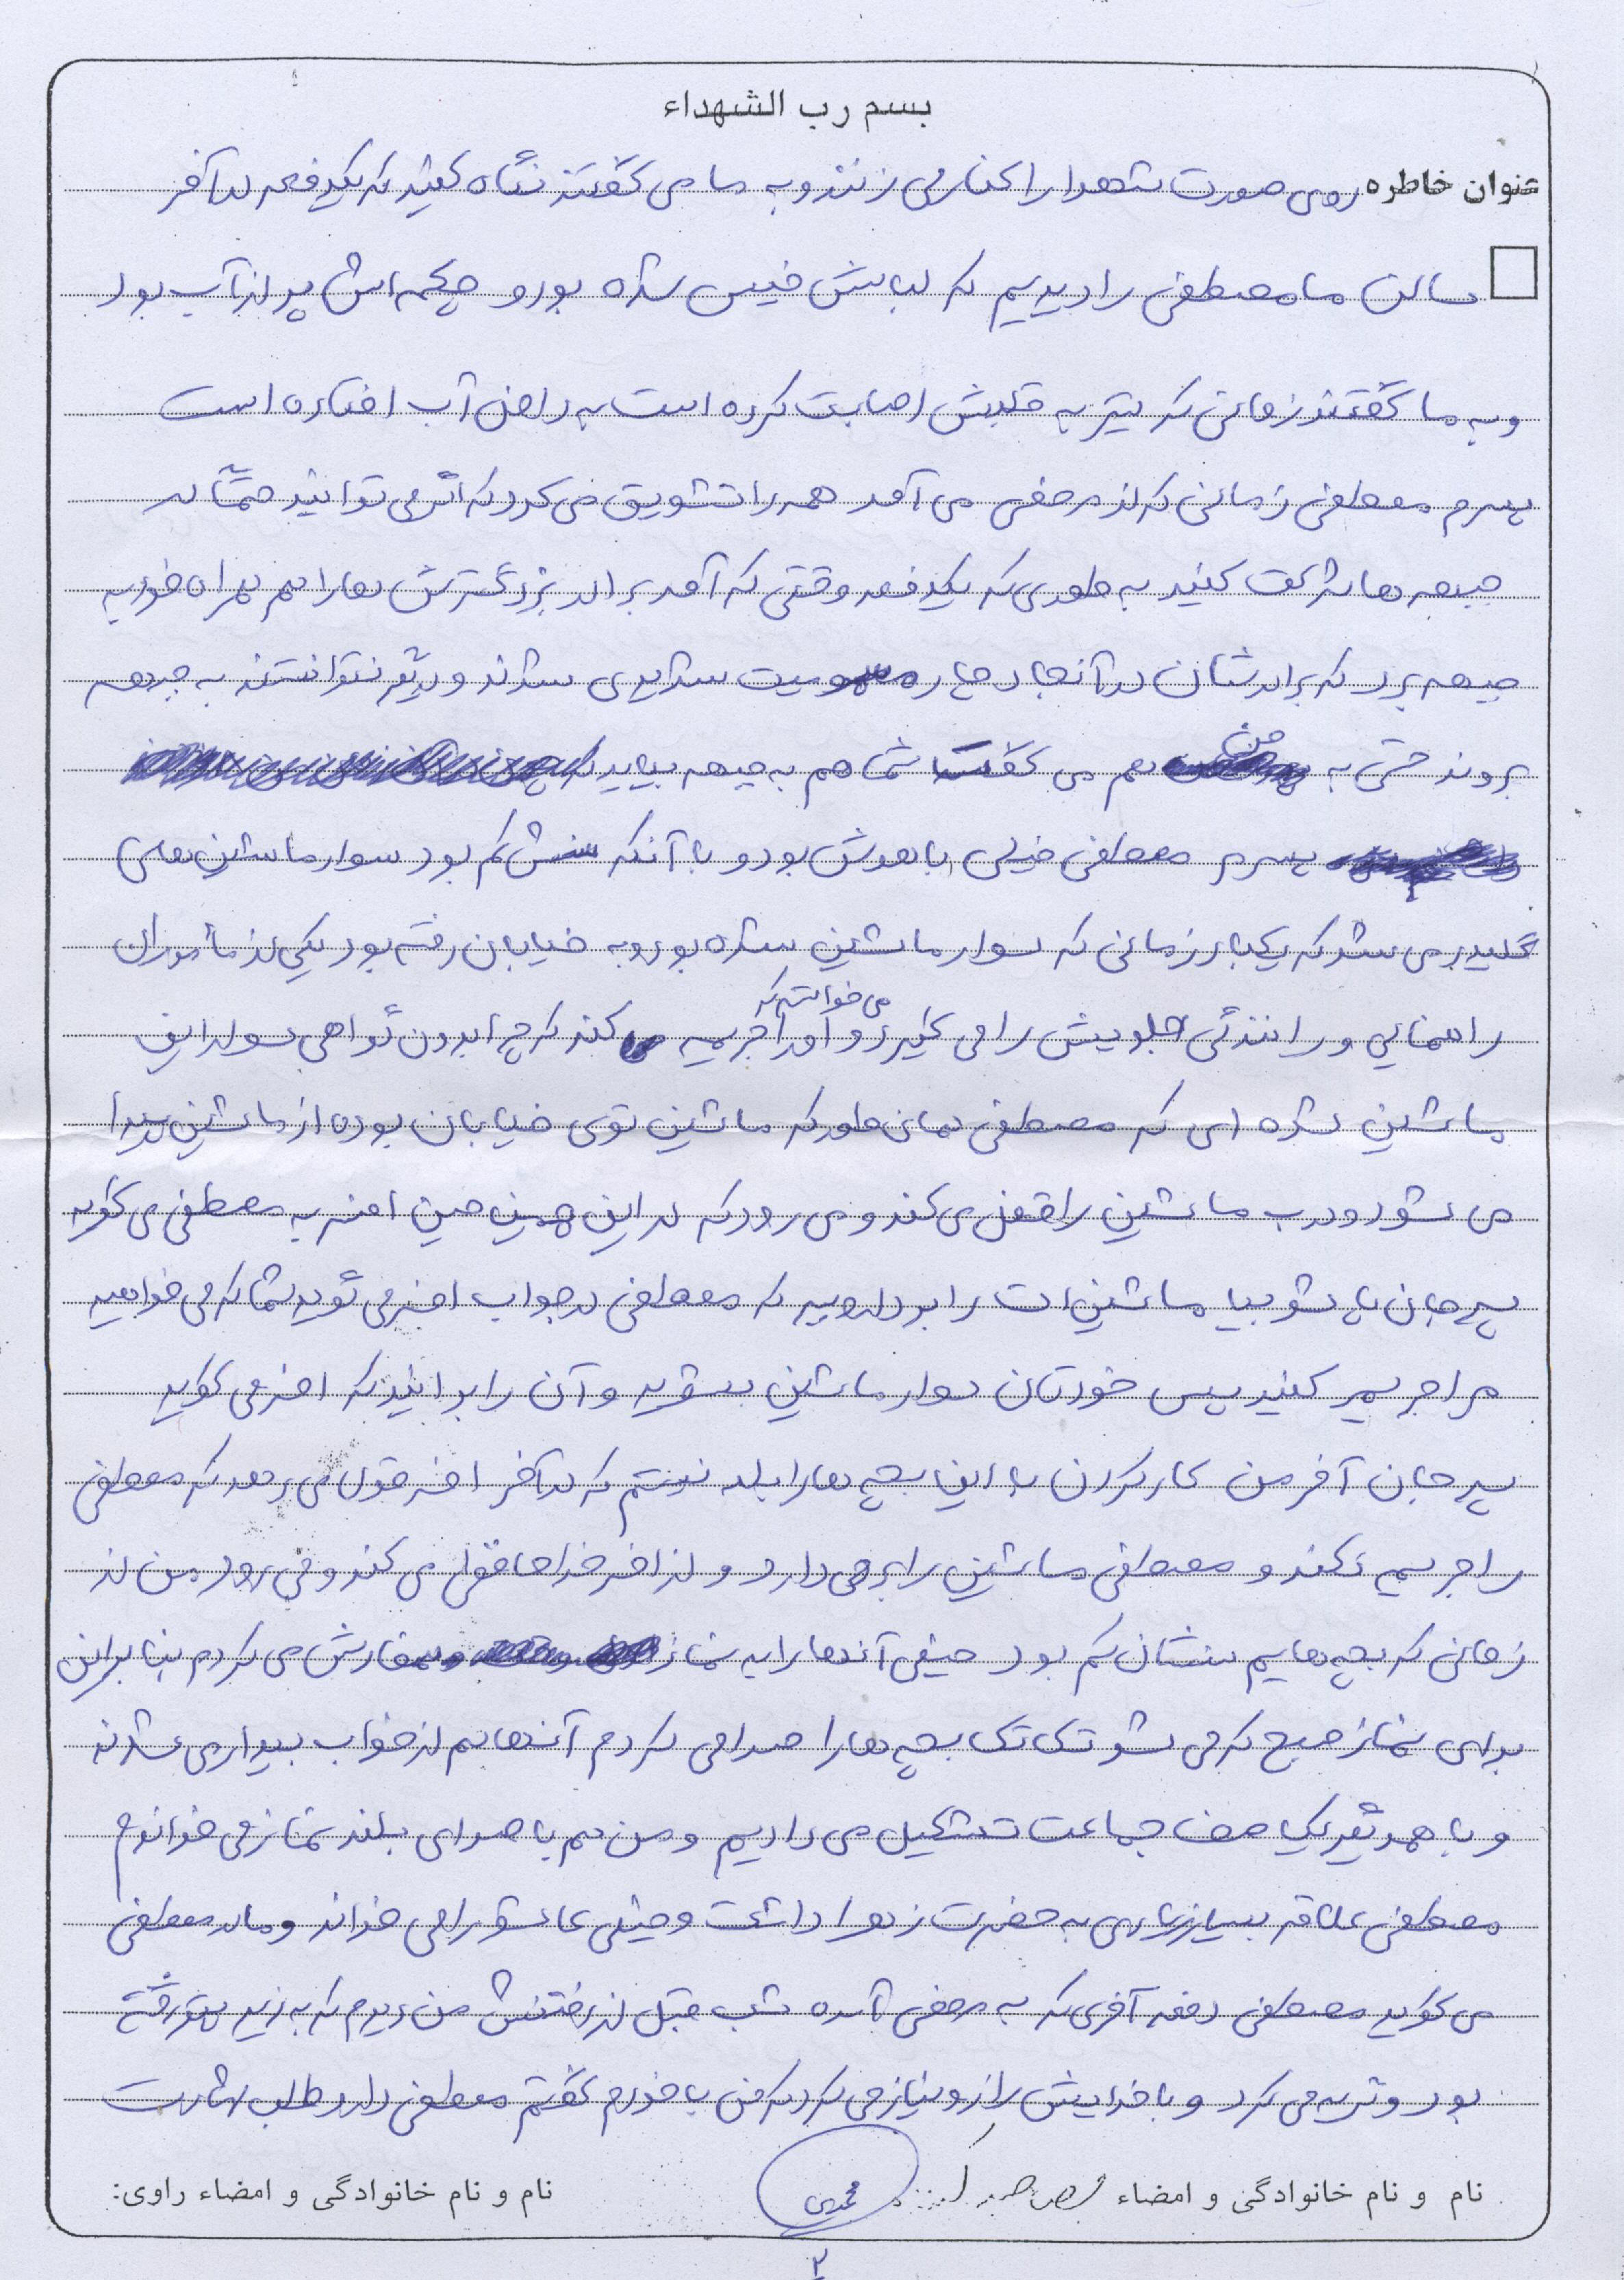 بسم رب الشهداء
عنوان خاطره روی صورت شهدا را کنار می زنند و به ما می گفتند نگاه کنید که یکدفعه در آخر
سالن ما مصطفی را دیدیم که لباسش خیس شده بود و چکمه اش پر از آب بود
و به ما گفتند زمانی که تیر به قلبش اصابت کرده است به داخل آب افتاده است
پسرم مصطفی زمانی که از مرخصی می آمد همه را تشویق می کرد که اگر می توانید حتماً در
جبهه ها شرکت کنید به طوری که یکدفعه وقتی که آمد برادر بزرگترش را هم همراه خود به
جبهه برد که برادرشان در آنجا دچار مسمومیت شدیدی شدند و دیگر نتوانستند به جبهه
بروند حتی به من هم می گفت شما هم به جبهه بیایید
پسرم مصطفی خیلی باهوش بود و با آنکه سنش کم بود سوار ماشین های
گلدیر می شد که یکبار زمانی که سوار ماشین شده بود و به خیابان رفته بود یکی از مأموران
راهنمایی و رانندگی جلویش را می گیرد و می خواسته که او را جریمه کند که چرا بدون گواهی سوار این
ماشین شده ای که مصطفی همان طور که ماشین توی خیابان بوده از ماشین پیدا
می شود و درب ماشین را قفل می کند و می رود که در این همین حین افسر به مصطفی می گوید
پسر جان پاشو بیا ماشین ات را بردار و ببر که مصطفی در جواب افسر می گوید شما که می خواهید
مرا جریمه کنید پس خودتان سوار ماشین بشوید و آن را برانید که افسر می گوید
پسر جان آخر من کار کردن با این بچه ها را بلد نیستم که در آخر افسر قول می دهد که مصطفی
را جریمه نکند و مصطفی ماشین را برمی دارد و از افسر خداحافظی می کند و می رود من از
زمانی که بچه هایم سنشان کم بود خیلی آنها را به نماز سفارش می کردم بنابراین
برای نماز صبح که می شد تک تک بچه ها را صدا می کردم آنها هم از خواب بیدار می شدند
و با همدیگر یک صف جماعت تشکیل می دادیم و من هم با صدای بلند نماز می خواندم
مصطفی علاقه بسیار زیادی به حضرت زهرا داشت و خیلی عاشورا می خواند و مادر مصطفی
می گوید مصطفی دفعه آخری که به مرخصی آمده شب قبل از رفتنش من دیدم که به زیر پتو رفته
بود و گریه می کرد و با خدایش راز و نیاز می کرد که من با خودم گفتم مصطفی دارد طلب شهادت
نام و نام خانوادگی و امضاء
محمدی
نام و نام خانوادگی و امضاء راوی:
۲